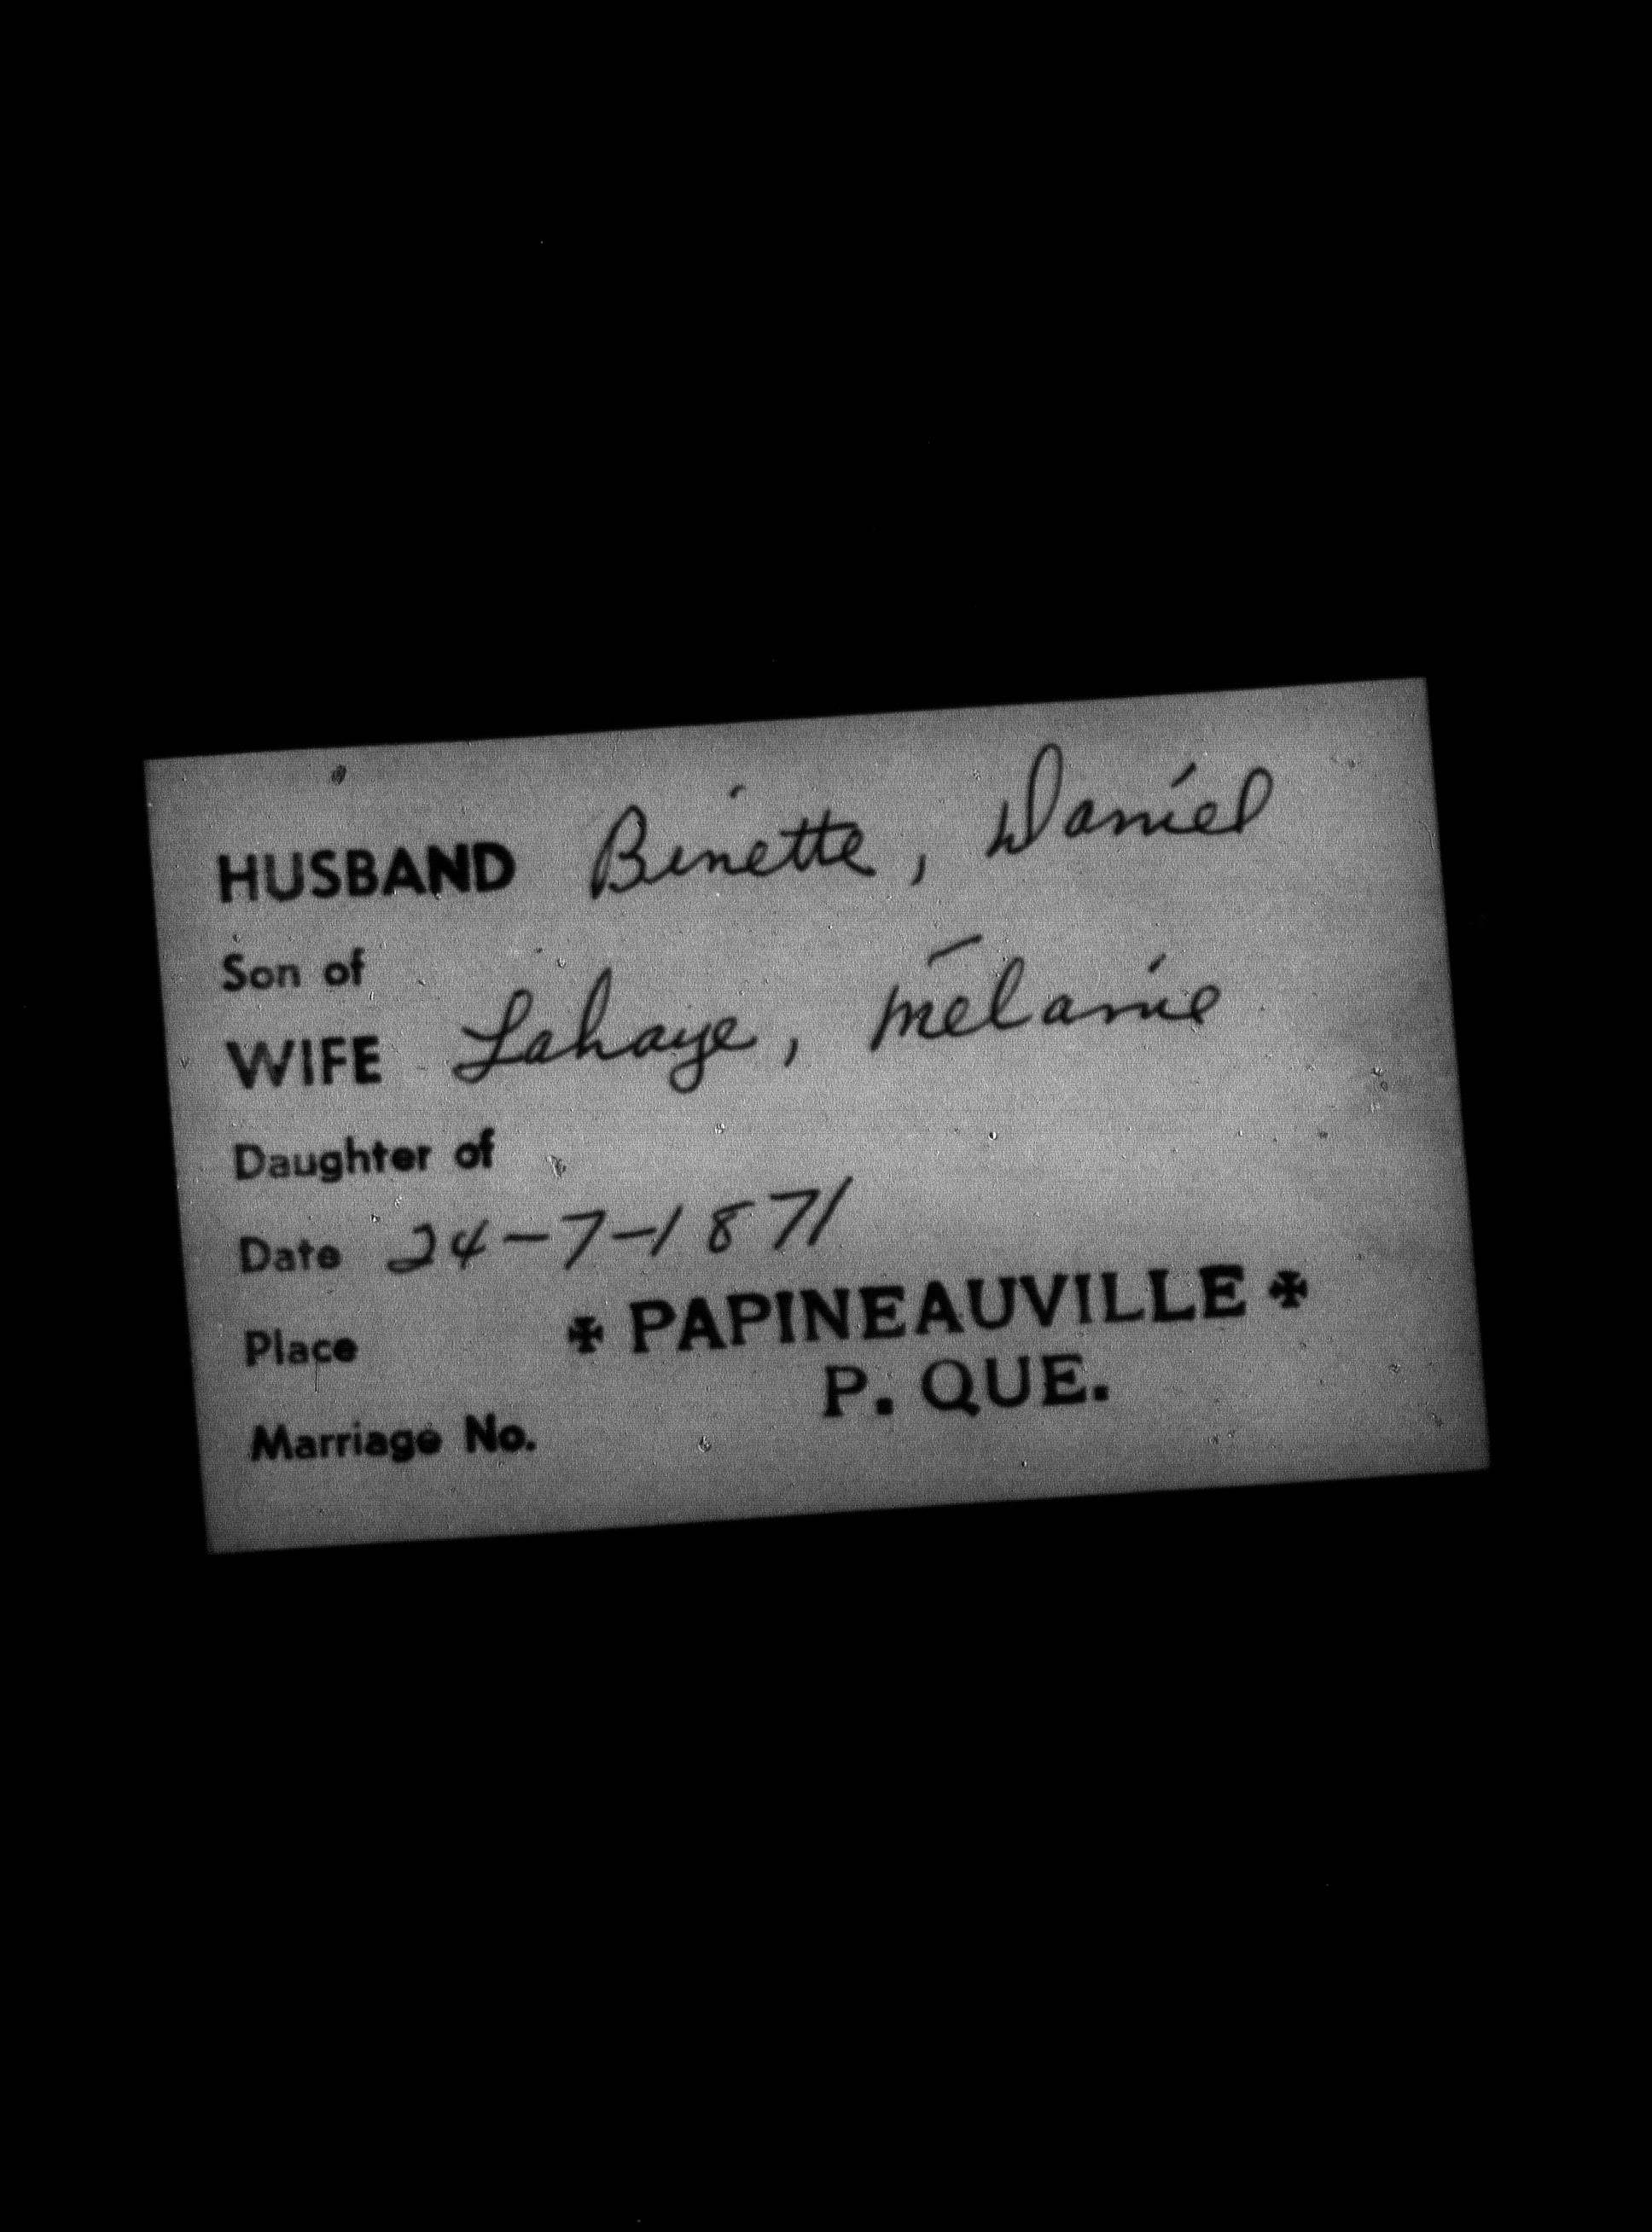 HUSBAND Binette, Daniel
Son of
WIFE Lahaye, Mélanie
Daughter of
Date 24-7-1871
Place ✠ PAPINEAUVILLE ✠
P. QUE.
Marriage No.